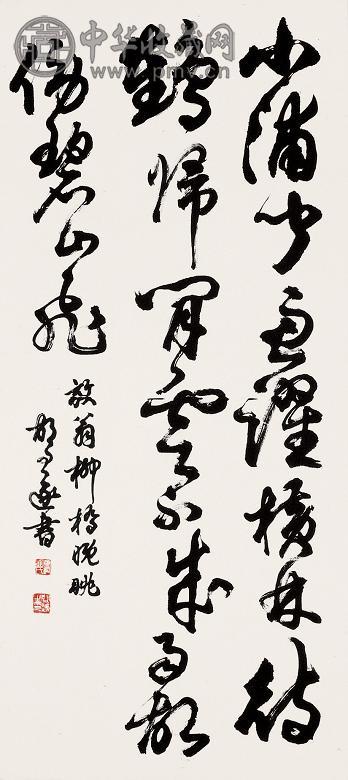 中华收藏网
www.pmv.cn
小浦聞魚躍橫林待
鶴歸閒雲不成雨故
傍碧山飛
放翁柳橋晚眺
胡問遂書